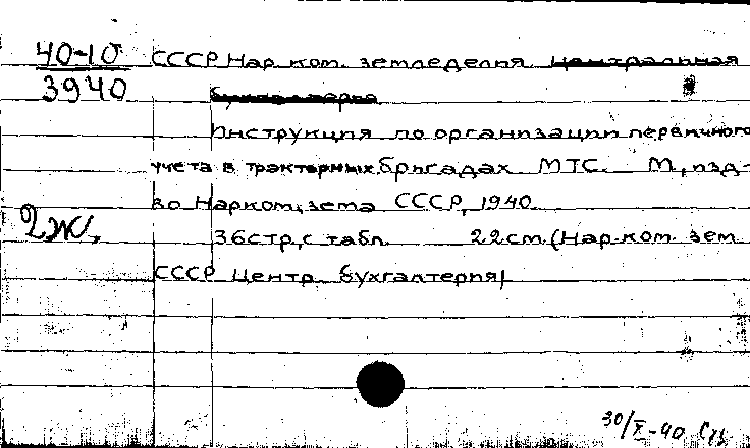 40-10 СССР Нар. ком. земледелия. Центральная
3940 бухгалтерия
Инструкция по организации первичного
учета в тракторных бригадах МТС. М., изд-
во Наркомзема СССР, 1940.
2ж, 36стр. с табл. 22см. (Нар. ком. зем.
СССР Центр. бухгалтерия)
30/X-40.